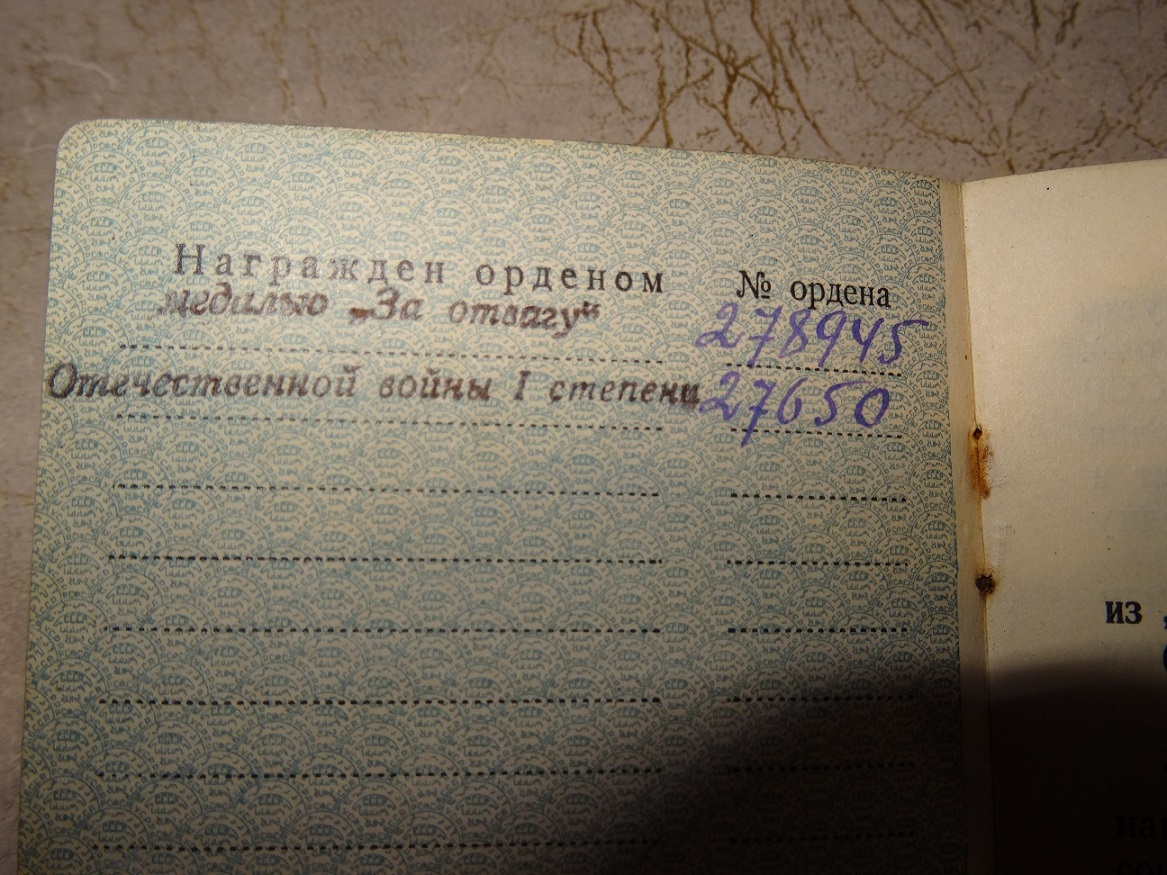 Награжден орденом № ордена
медалью „За отвагу“ 278945
Отечественной войны I степени 27650
из